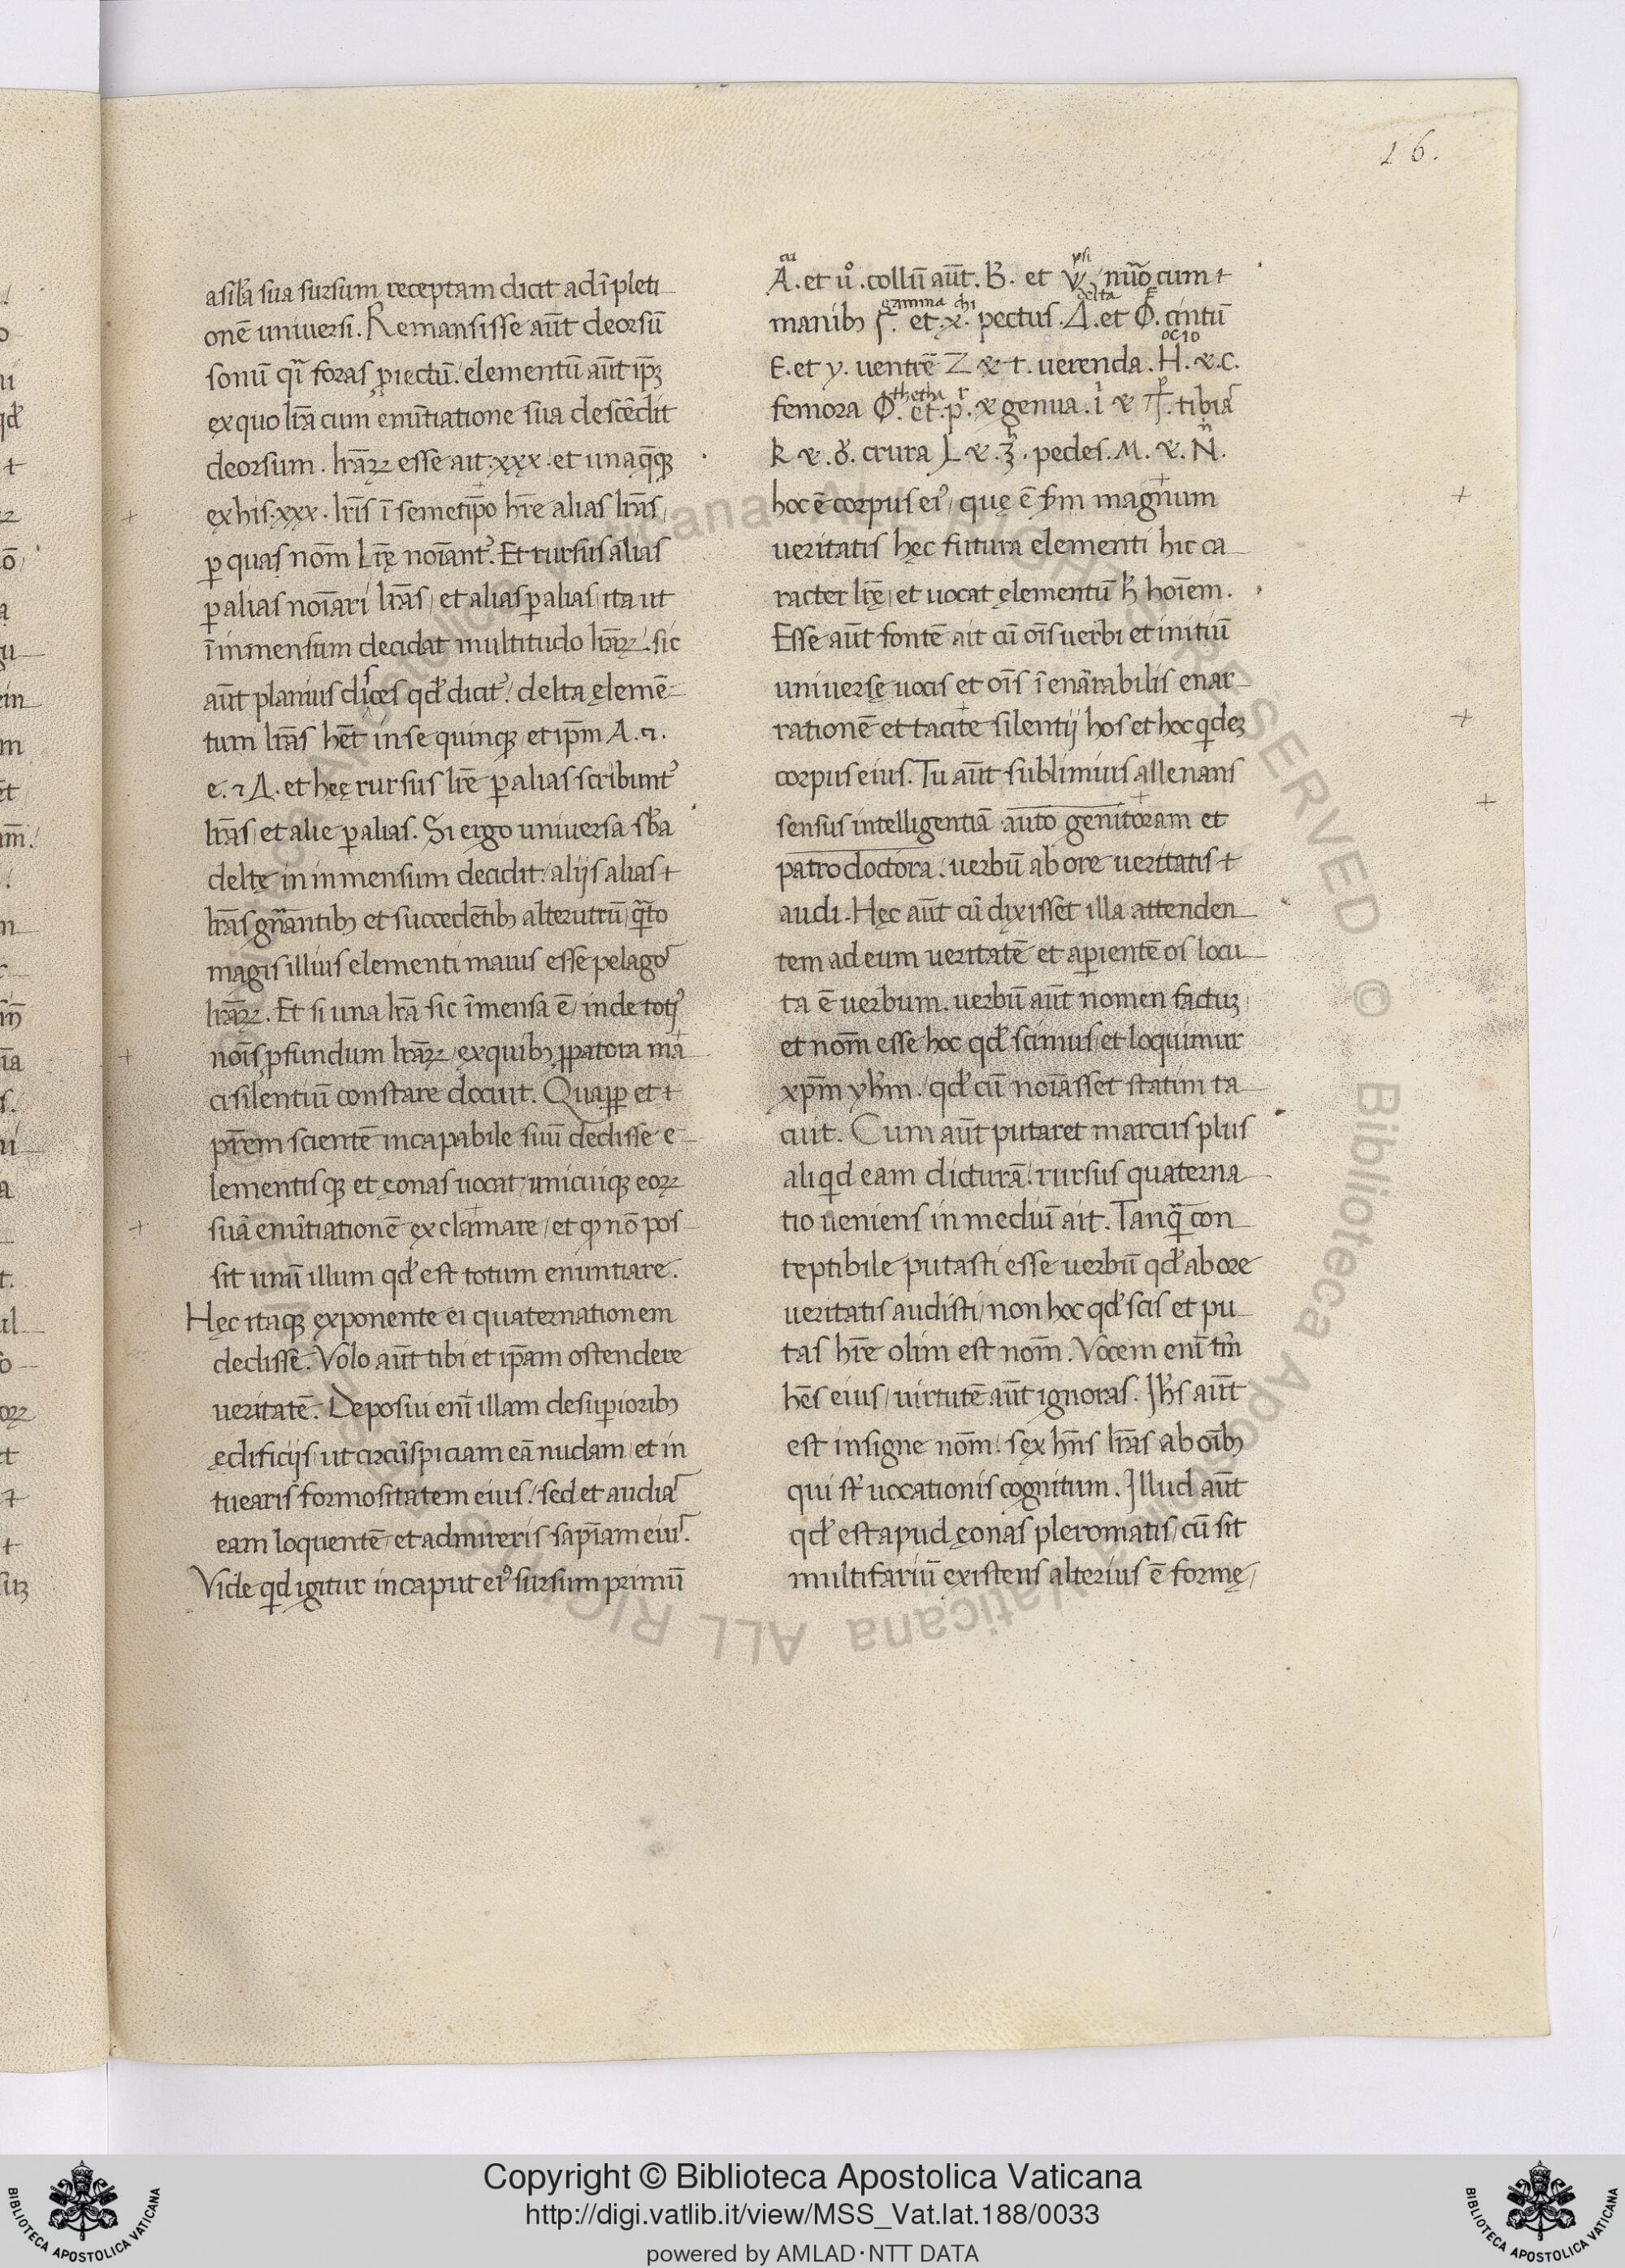 26.
a sił̄a sua sursum receptam dicit ad īpleti
onē universi. Remansisse aūt deorsū
sonū qͣi foras ꝓiectū. elementū aūt ip̄ꝫ
ex quo lr̄a cum enūtiatione sua descēdit
deorsum. lr̄aꝝ esse ait .xxx. et unāqͣqꝫ
ex his .xxx. lr̄is ī semetip̄o hr̄e alias lr̄as /
ꝑ quas nom̄ Lr̄ę noīantᷣ. Et rursus alias
ꝑ alias noīari lr̄as / et alias ꝑ alias / ita ut
ī inmensum decidat multitudo lr̄aꝝ. sic
aūt planius dices qđ dicitᷣ. delta ęlemē
tum lr̄as hēt in se quinqꝫ et ip̄m A. ⁊.
e. ⁊ Δ. et hęę rursus lr̄e ꝑ alias scribuntᷣ
lr̄as / et alie ꝑ alias. Si ergo universa sb̄a
deltę in inmensum decidit. alijs alias
lr̄as gn̄antibꝫ et succedētibꝫ alterutrū / qͣto
magis illius elementi maius esse pelagoˢ
lr̄aꝝ. Et si una lr̄a sic īmensa ē / inde totiꝰ
noīs ꝓfundum lr̄aꝝ / ex quibꝫ ꝓpatora ma
ci silentiū constare docuit. Quaꝓp et
pr̄em scientē incapabile suū dedisse e
lementis qꝫ et ęonas vocat / unicuiqꝫ eoꝝ
suā enūtiationē exclamare / et ꝙ nō pos
sit unū illum qđ est totum enuntiare.
Hęc itaqꝫ exponente ei quaternationem
dedisse. Volo aūt tibi et ip̄am ostendere
veritatē. Deposui enī illam de suꝑioribꝫ
ędificijs / ut circūspiciam eā nudam / et in
tuearis formositatem eius / sed et audiaˢ
eam loquentē / et admireris sap̄iam eiuˢ.
Vide qͥd igitur in caput eiꝰ sursum primū
au psi
A. et ω. collū aūt. B. et ψ. nūo cum
gamma chi delta
manibꝫ Γ. et .χ. pectus .Δ. et Φ. cintū
octo
E. et y. ventrē Z & t. verenda .H. & .C.
thetha r p
femora Θ. et .p. & genua .i & π. tibiaˢ
n
K & .o. crura L & .ξ. pedes .M. & .N.
hoc ē corpus eiꝰ / quę ē sm̄ magnum
veritatis hęc futura elementi hic ca
racter lr̄ę / et vocat ęlementū h̄ hoīem.
Esse aūt fontē ait cū oīs verbi et initiū
universę vocis et oīs īenārabilis enar
rationē et tacite silentij hos et hoc qͥdeꝫ
corpus eius. Tu aūt sublimius allenans
sensus intelligentiā auto genitoram et
patrodoctora. verbū ab ore veritatis
audi. Hęc aūt cū dixisset illa attenden
tem ad eum veritatē et aꝑientē os locu
ta ē verbum. verbū aūt nomen factuꝫ
et nom̄ esse hoc qđ scimus / et loquimur
xp̄m yh̄m. qđ cū noīasset statim ta
cuit. Cum aūt putaret marcus plus
aliqͥd eam dicturā. rursus quaterna
tio veniens in mediū ait. Tanqͣ con
teptibile putasti esse verbū qđ ab ore
veritatis audisti / non hoc qđ scis et pu
tas hr̄e olim est nom̄. Vocem enī tm̄
hēs eius / virtutē aūt ignoras. Ih̄s aūt
est insigne nom̄. sex hn̄s lr̄as ab oībꝫ
qui sūt vocationis cognitum. Illud aūt
qđ est apud ęonas pleromatis / cū sit
multifariū existens alterius ē formę /
Copyright © Biblioteca Apostolica Vaticana
http://digi.vatlib.it/view/MSS_Vat.lat.188/0033
powered by AMLAD·NTT DATA